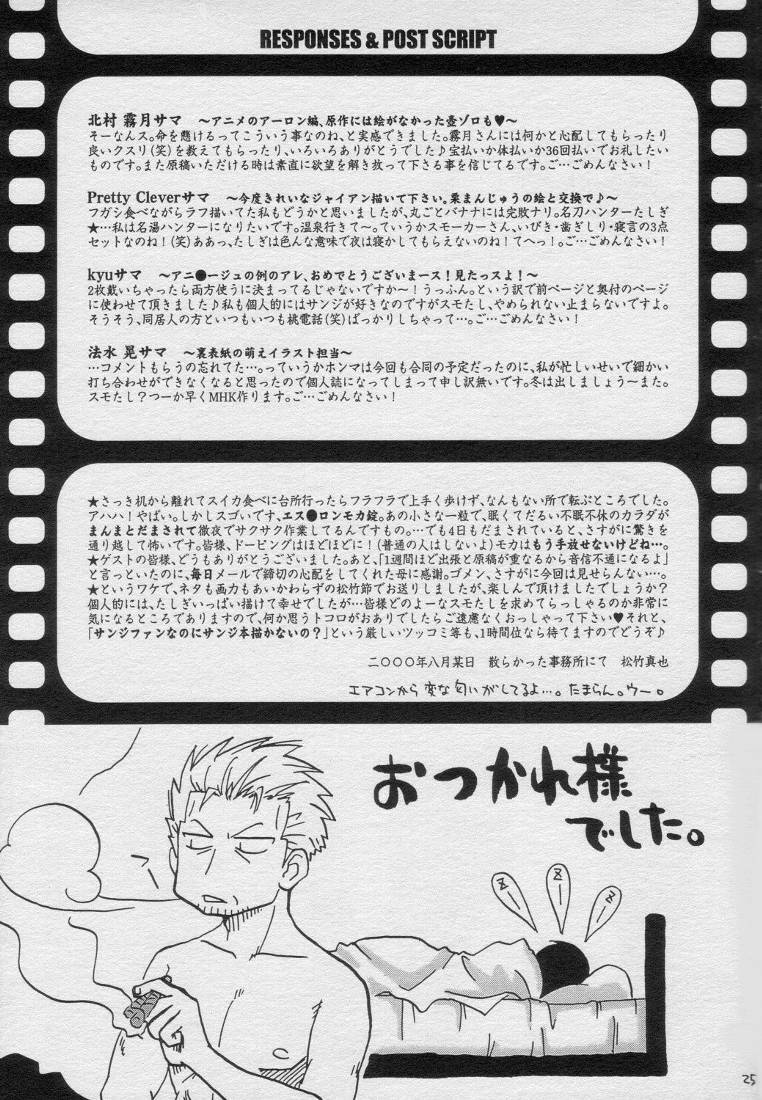 RESPONSES & POST SCRIPT
北村 霧月サマ　～アニメのアーロン編、原作には絵がなかった壺ゾロも♥～
そーなんス。命を懸けるってこういう事なのね、と実感できました。霧月さんには何かと心配してもらったり
良いクスリ(笑)を教えてもらったり、いろいろありがとうでした♪宝払いか体払いか36回払いでお礼したい
ものです。また原稿いただける時は素直に欲望を解き放って下さる事を信じてるです。ご…ごめんなさい！
Pretty Cleverサマ　～今度きれいなジャイアン描いて下さい。栗まんじゅうの絵と交換で♪～
フガシ食べながらラフ描いてた私もどうかと思いましたが、丸ごとバナナには完敗ナリ。名刀ハンターたしぎ
★…私は名湯ハンターになりたいです。温泉行きて～。ていうかスモーカーさん、いびき・歯ぎしり・寝言の3点
セットなのね！(笑)ああっ、たしぎは色んな意味で夜は寝かしてもらえないのね！てへっ！。ご…ごめんなさい！
kyuサマ　～アニ●ージュの例のアレ、おめでとうございまース！見たっスよ！～
2枚戴いちゃったら両方使うに決まってるじゃないですか～！うっふん。という訳で前ページと奥付のページ
に使わせて頂きました♪私も個人的にはサンジが好きなのですがスモたし、やめられない止まらないですよ。
そうそう、同居人の方といつもいつも桃電話(笑)ばっかりしちゃって…。ご…ごめんなさい！
法水 晃サマ　～裏表紙の萌えイラスト担当～
…コメントもらうの忘れてた…。っていうかホンマは今回も合同の予定だったのに、私が忙しいせいで細かい
打ち合わせができなくなると思ったので個人誌になってしまって申し訳無いです。冬は出しましょう～また。
スモたし？つーか早くMHK作ります。ご…ごめんなさい！
★さっき机から離れてスイカ食べに台所行ったらフラフラで上手く歩けず、なんもない所で転ぶところでした。
アハハ！やばい。しかしスゴいです、エス●ロンモカ錠。あの小さな一粒で、眠くてだるい不眠不休のカラダが
まんまとだまされて徹夜でサクサク作業してるんですもの。…でも4日もだまされていると、さすがに驚きを
通り越して怖いです。皆様、ドーピングはほどほどに！(普通の人はしないよ)モカはもう手放せないけどね…。
★ゲストの皆様、どうもありがとうございました。あと、「1週間ほど出張と原稿が重なるから音信不通になるよ」
と言っといたのに、毎日メールで締切の心配をしてくれた母に感謝。ゴメン、さすがに今回は見せらんない…。
★というワケで、ネタも画力もあいかわらずの松竹節でお送りしましたが、楽しんで頂けましたでしょうか？
個人的には、たしぎいっぱい描けて幸せでしたが…皆様どのよーなスモたしを求めてらっしゃるのか非常に
気になるところでありますので、何か思うトコロがおありでしたらご遠慮なくおっしゃって下さい♥それと、
「サンジファンなのにサンジ本描かないの？」という厳しいツッコミ等も、1時間位なら待てますのでどうぞ♪
二〇〇〇年八月某日　散らかった事務所にて　松竹真也
エアコンから変な匂いがしてるよ…。たまらん。ウー。
おつかれ様
でした。
Z
Z
Z
25